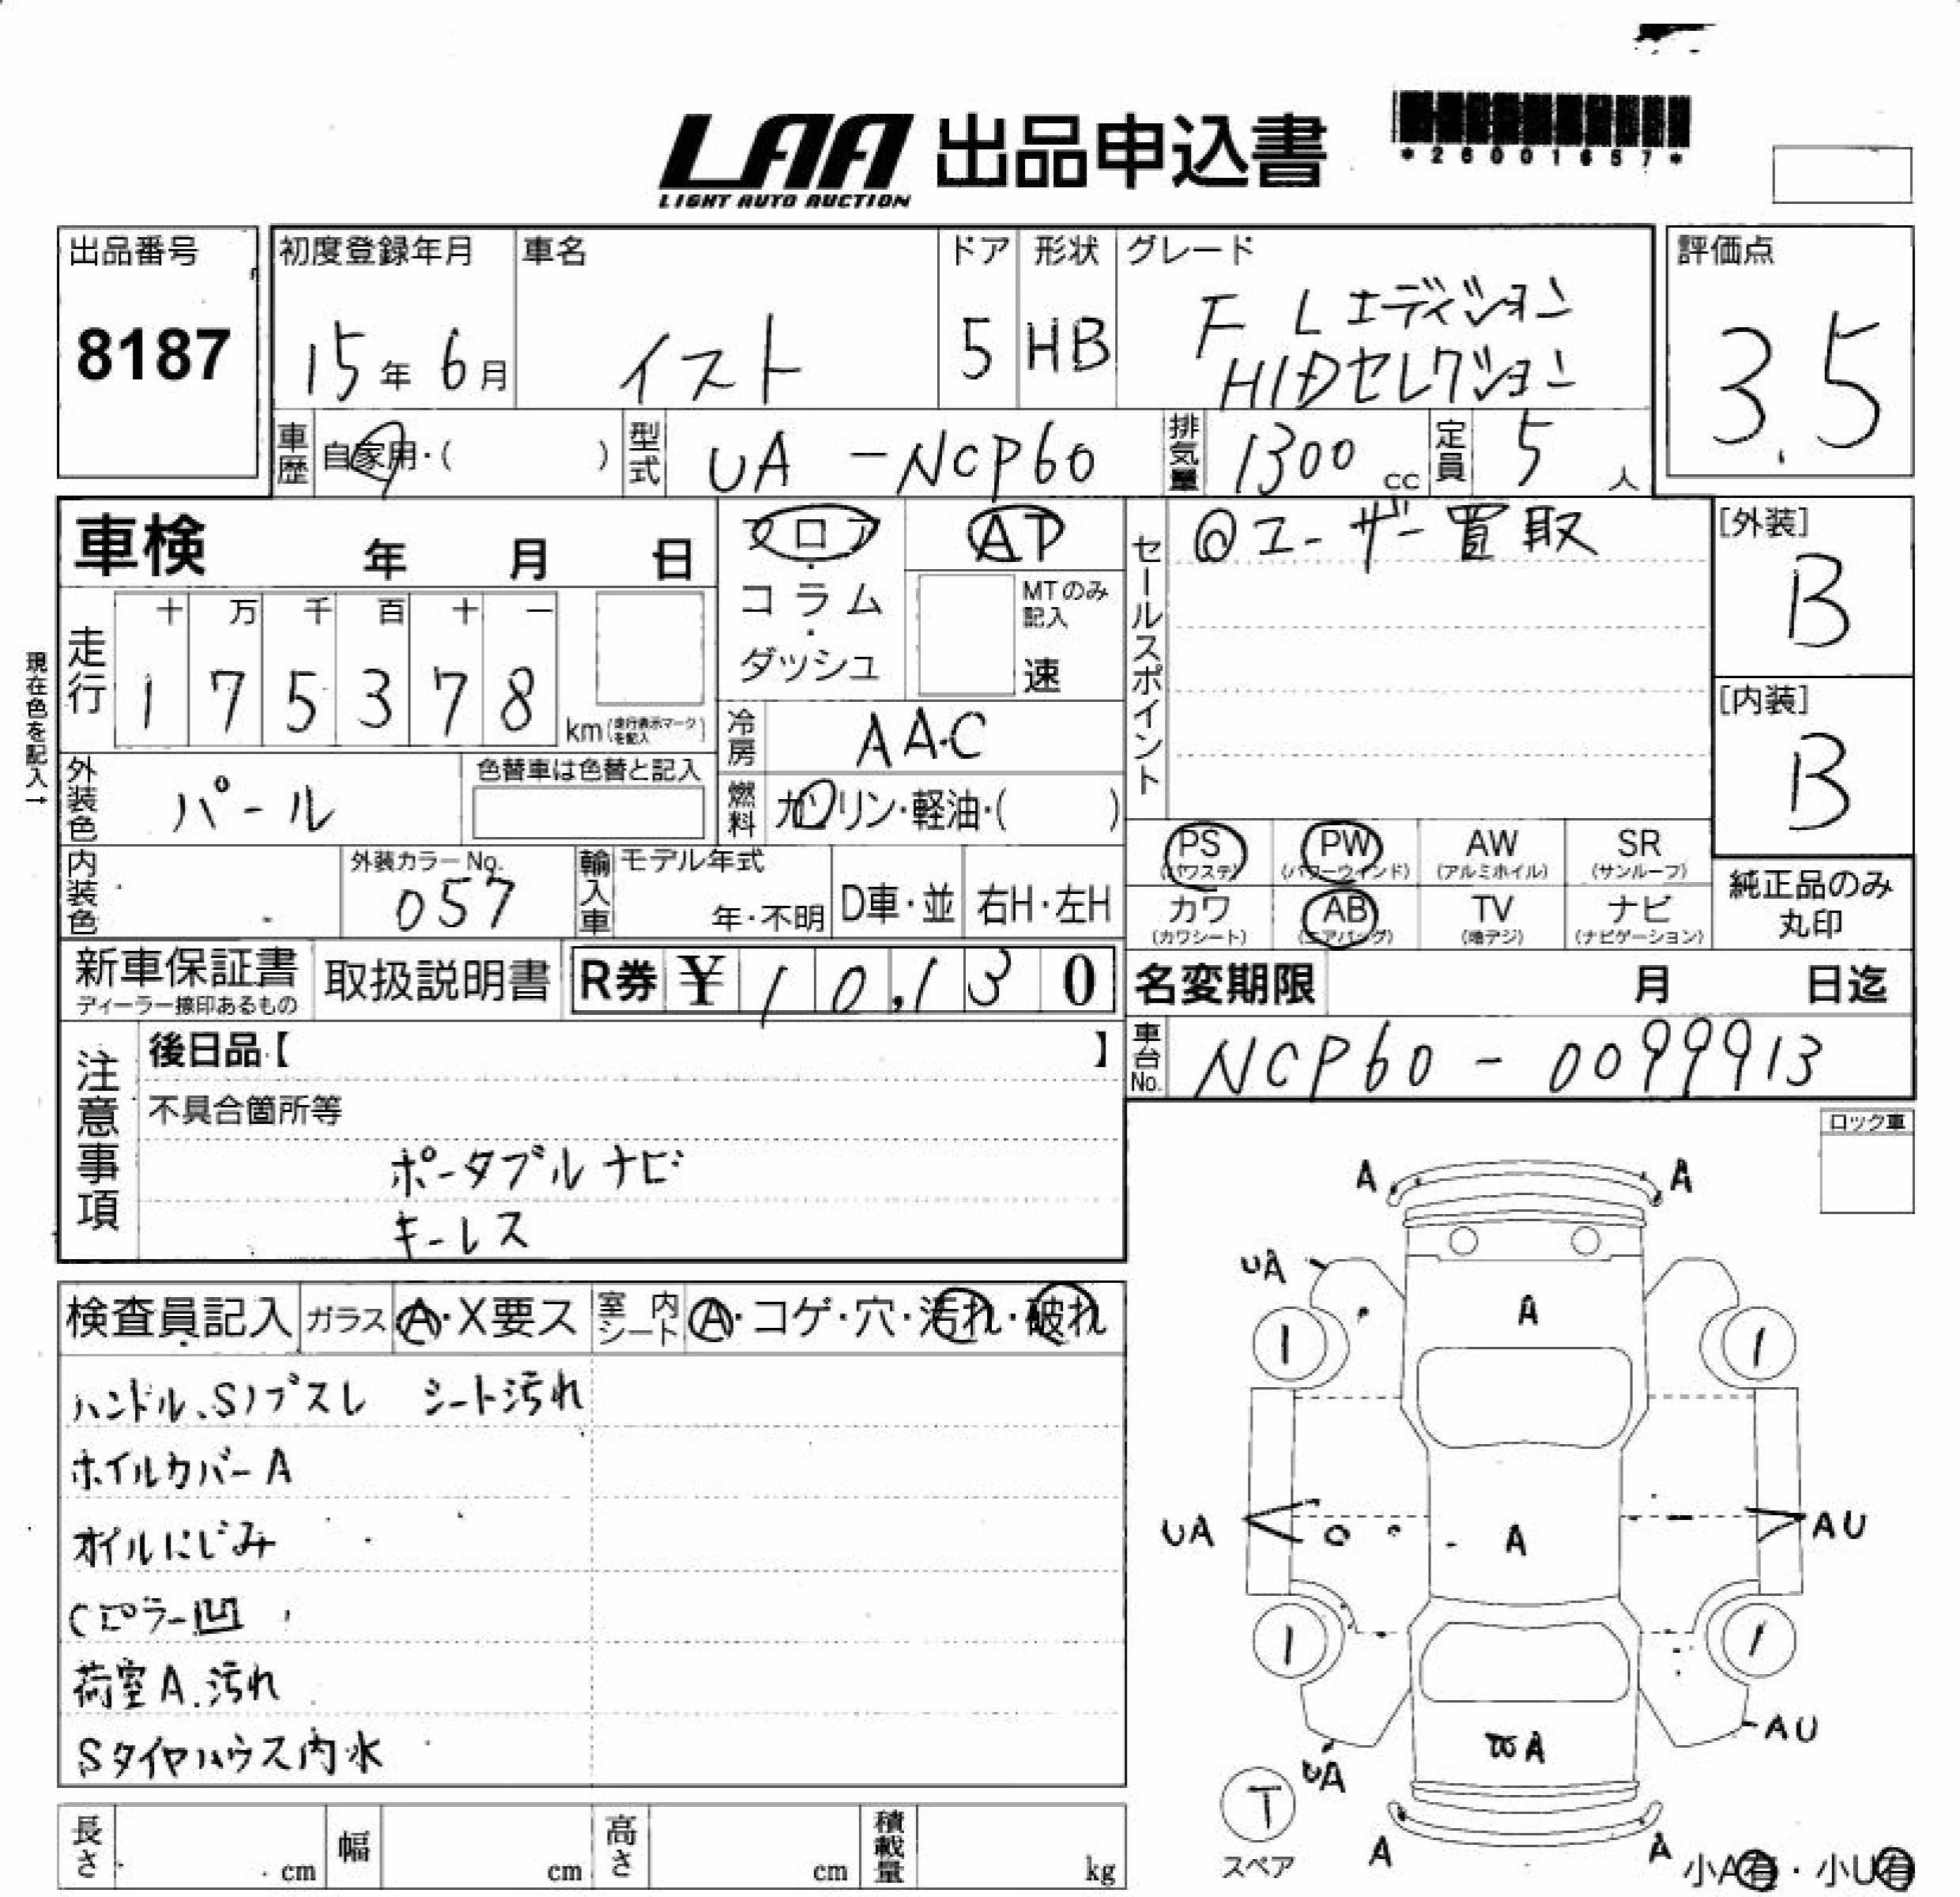 LAA 出品申込書
LIGHT AUTO AUCTION
*26001657*
出品番号
8187
初度登録年月
15年 6月
車名
イスト
ドア
5
形状
HB
グレード
F Lエディション
HIDセレクション
評価点
3.5
車歴
自家用・( )
型式
UA-NCP60
排気量
1300cc
定員
5人
車検 年 月 日
フロア・コラム・ダッシュ
AT
MTのみ記入
速
セールスポイント
@ユーザー買取
[外装]
B
[内装]
B
現在色を記入→
走行
十 万 千 百 十 一
1 7 5 3 7 8
km(走行表示マークを記入)
冷房
AAC
外装色
パール
色替車は色替と記入
燃料
ガソリン・軽油・( )
PS
(パワステ)
PW
(パワーウィンド)
AW
(アルミホイル)
SR
(サンルーフ)
カワ
(カワシート)
AB
(エアバッグ)
TV
(地デジ)
ナビ
(ナビゲーション)
純正品のみ
丸印
内装色
外装カラーNo.
057
輸入車
モデル年式
年・不明
D車・並
右H・左H
新車保証書
ディーラー捺印あるもの
取扱説明書
R券 ¥10,130
名変期限 月 日迄
車台No.
NCP60-0099913
注意事項
後日品【 】
不具合箇所等
ポータブルナビ
キーレス
ロック車
検査員記入
ガラス A・X要ス
室内シート A・コゲ・穴・汚れ・破れ
ハンドル、Sノブスレ シート汚れ
ホイルカバーA
オイルにじみ
Cピラー凹
荷室A.汚れ
Sタイヤハウス内水
A A
UA
A
1 1
UA A AU
1 1
A
AU
UA
T
スペア
A A
小A有・小U有
長さ cm
幅 cm
高さ cm
積載量 kg